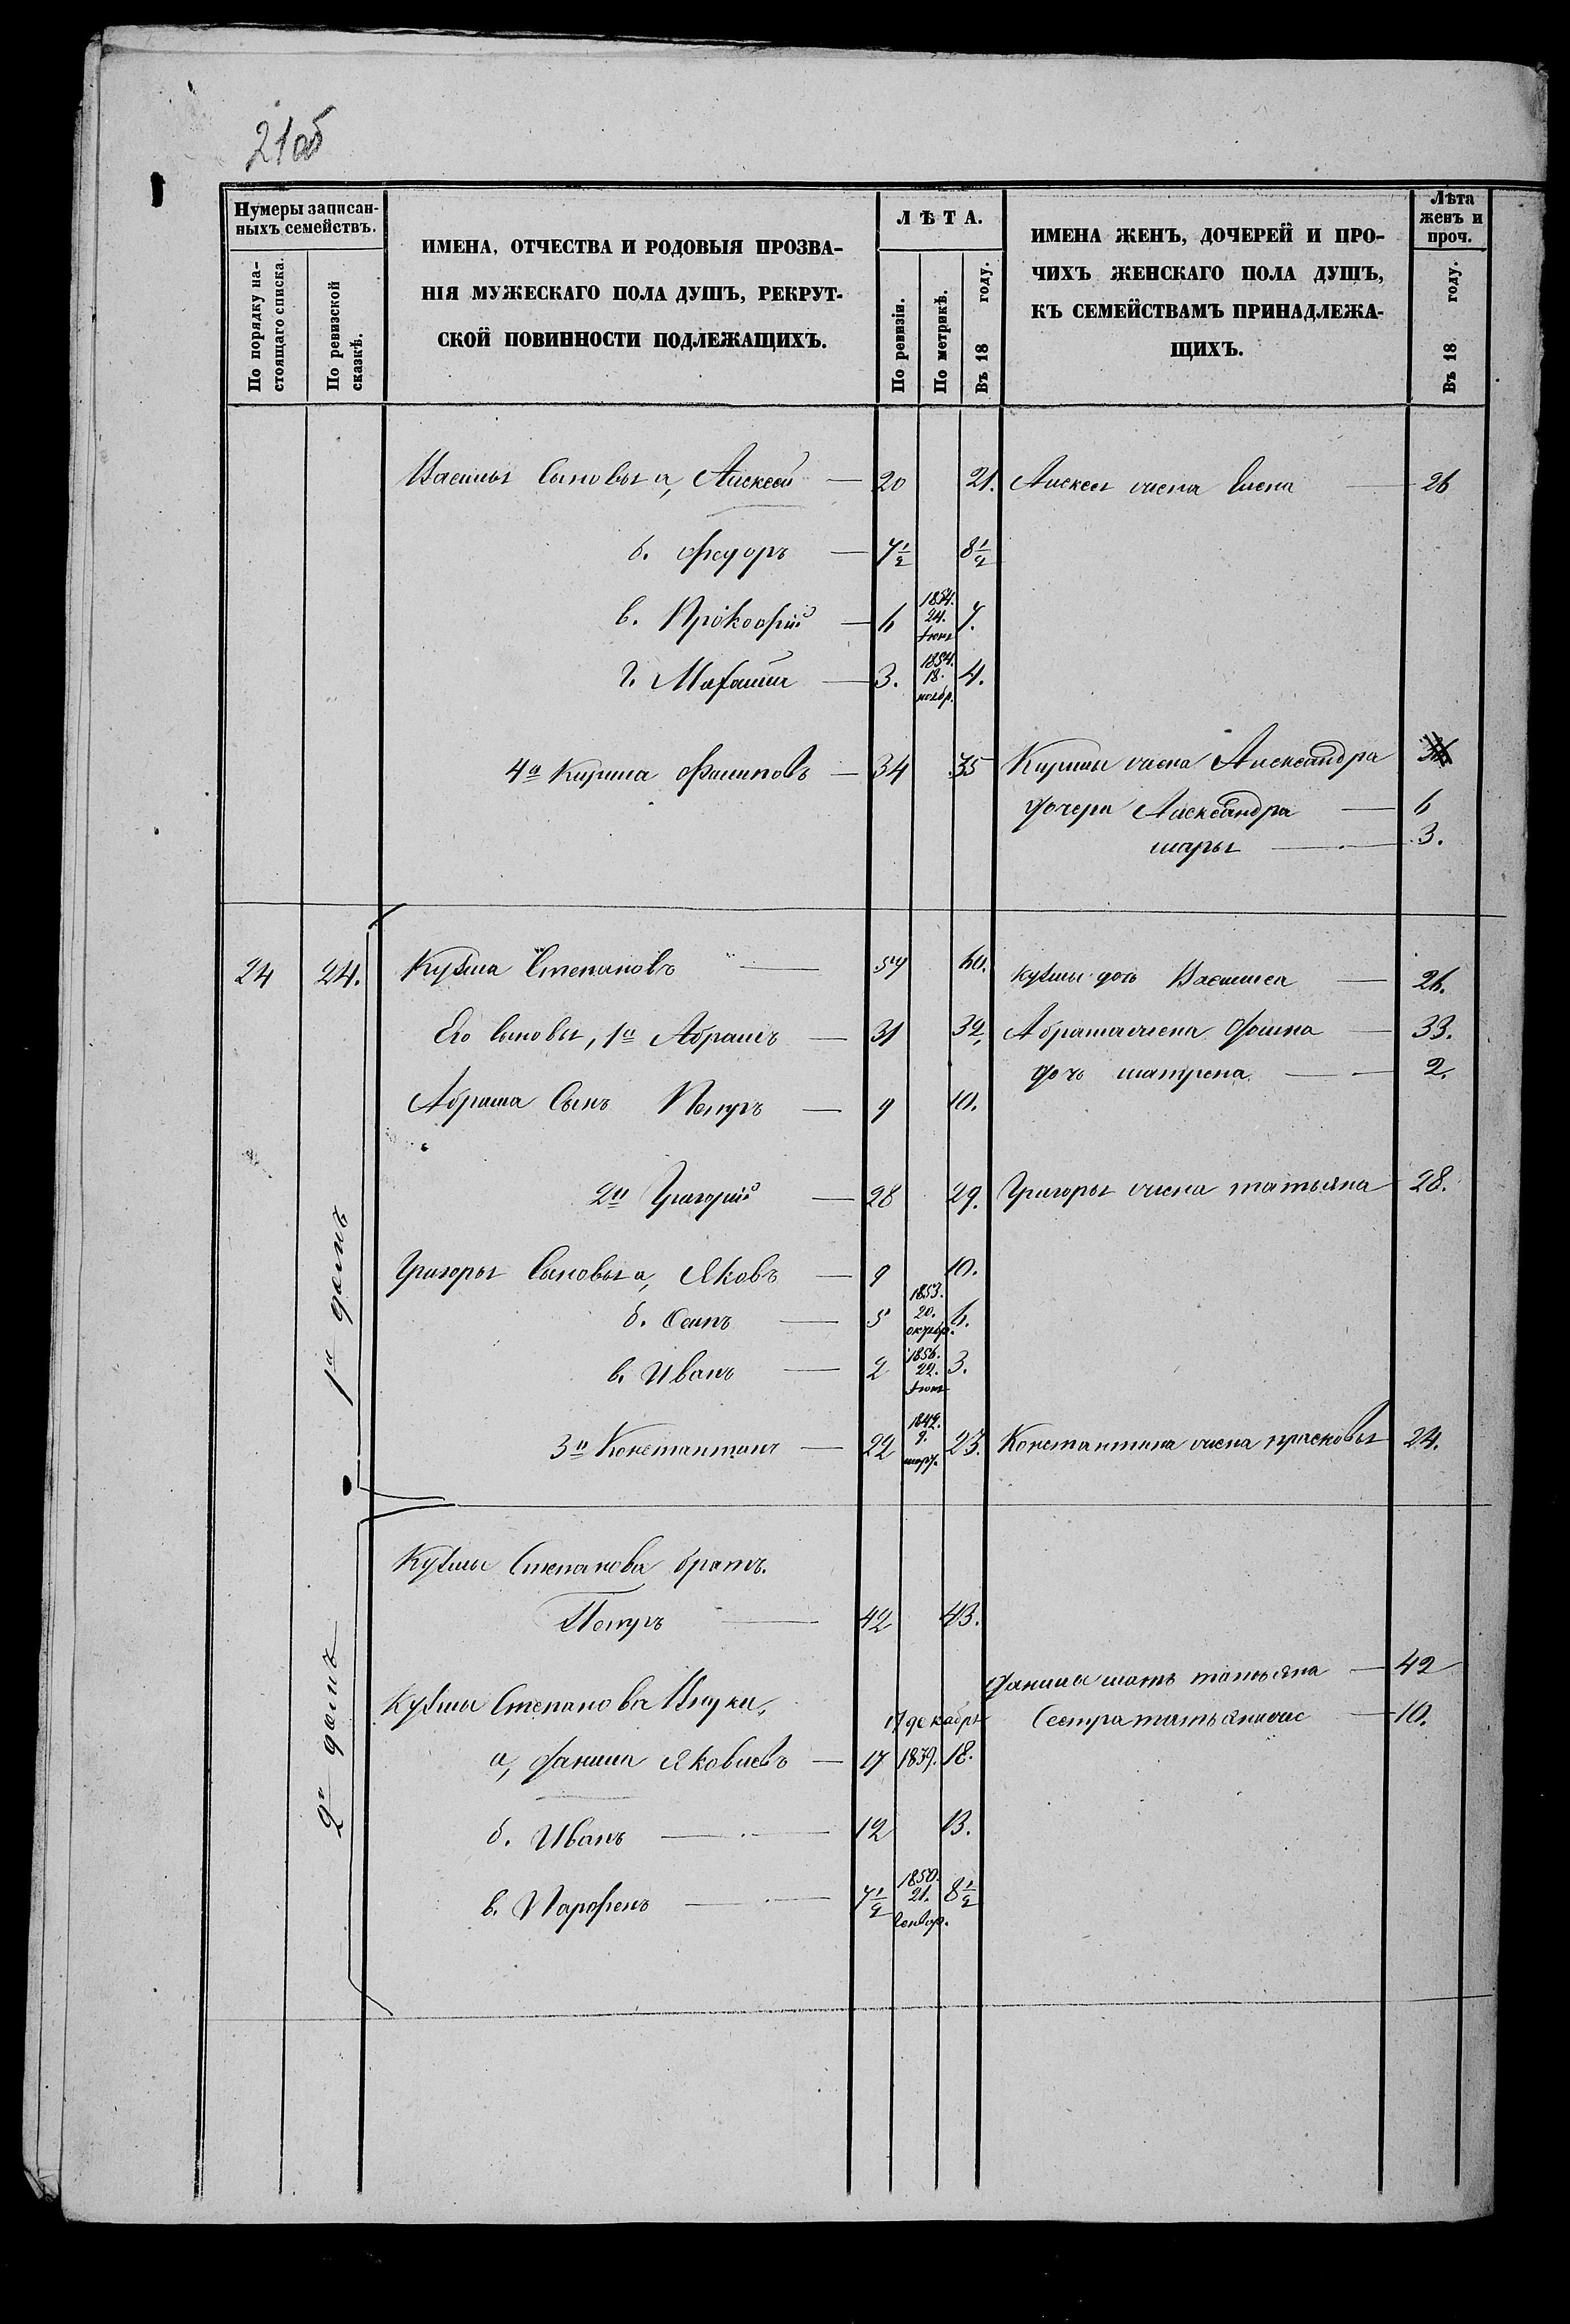 21об
Нумеры записан-
ныхъ семействъ.
По порядку на-
стоящаго списка.
По ревизской
сказкѣ.
ИМЕНА, ОТЧЕСТВА И РОДОВЫЯ ПРОЗВА-
НІЯ МУЖЕСКАГО ПОЛА ДУШЪ, РЕКРУТ-
СКОЙ ПОВИННОСТИ ПОДЛЕЖАЩИХЪ.
ЛѢТА.
По ревизіи.
По метрикѣ.
Въ 18 году.
ИМЕНА ЖЕНЪ, ДОЧЕРЕЙ И ПРО-
ЧИХЪ ЖЕНСКАГО ПОЛА ДУШЪ,
КЪ СЕМЕЙСТВАМЪ ПРИНАДЛЕЖА-
ЩИХЪ.
Лѣта
женъ и
проч.
Въ 18 году.
Сыновья а, Алексей — 20 21. Алексея жена — 26
б. Федоръ — 7 1/2 8 1/2
в. Прокофій — 6 1854. 24. 7.
г. — 3. 1854. 18. ноябр. 4.
4й Филиповъ — 34 35 жена Александра
дочери Александра — 6
марья — 3.
24 24. Кузма Степановъ — 57 60. кузмы дочь Василиса — 26.
Его сыновья, 1й Абрамъ — 31 32, Абрама жена — 33.
дочь матрена — 2.
Абрама Сынъ Петръ — 9 10.
2й Григорій — 28 29. Григорья жена татьяна 28.
Григорья Сыновья а, Яковъ — 9 10.
б. Осипъ — 5 1853. 20. октяб. 6.
в. Иванъ — 2 1856. 22. 3.
3й Константинъ — 22 9. 23. Константина жена прасковья 24.
1й домъ
Кузмы Степанова братъ.
Петръ — 42 43.
данилы мать татьяна — 42
Кузмы Степанова Внуки,
17 декабря Сестра — 10.
а, данила Яковлевъ — 17 1839. 18.
б. Иванъ — 12 13.
в. Парфенъ — 7 1/2 1850. 21. 8 1/2
2й домъ